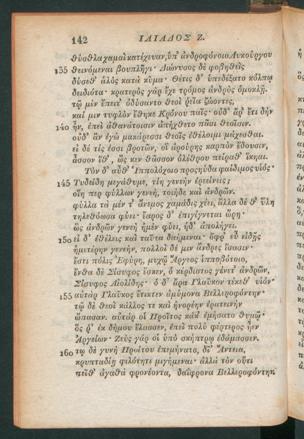 142 ΙΛΙΑΔΟΣ Ζ.
θύσθλα χαμαὶ κατέχευαν, ὑπ' ἀνδροφόνοιο Λυκούργου
135 θεινόμεναι βουπλῆγι· Διώνυσος δὲ φοβηθεὶς
δύσεθ' ἁλὸς κατὰ κῦμα· Θέτις δ' ὑπεδέξατο κόλπῳ
δειδιότα· κρατερὸς γὰρ ἔχε τρόμος ἀνδρὸς ὁμοκλῇ.
τῷ μὲν ἔπειτ' ὀδύσαντο θεοὶ ῥεῖα ζώοντες,
καί μιν τυφλὸν ἔθηκε Κρόνου παῖς· οὐδ' ἂρ ἔτι δὴν
140 ἦν, ἐπεὶ ἀθανάτοισιν ἀπήχθετο πᾶσι θεοῖσιν.
οὐδ' ἂν ἐγὼ μακάρεσσι θεοῖς ἐθέλοιμι μάχεσθαι.
εἰ δέ τίς ἐσσι βροτῶν, οἳ ἀρούρης καρπὸν ἔδουσιν,
ἆσσον ἴθ', ὥς κεν θᾶσσον ὀλέθρου πείραθ' ἵκηαι.
Τὸν δ' αὖθ' Ἱππολόχοιο προσηύδα φαίδιμος υἱός·
145 Τυδείδη μεγάθυμε, τίη γενεὴν ἐρεείνεις;
οἵη περ φύλλων γενεή, τοιήδε καὶ ἀνδρῶν.
φύλλα τὰ μέν τ' ἄνεμος χαμάδις χέει, ἄλλα δέ θ' ὕλη
τηλεθόωσα φύει· ἔαρος δ' ἐπιγίγνεται ὥρη·
ὣς ἀνδρῶν γενεὴ ἡμὲν φύει, ἠδ' ἀπολήγει.
150 εἰ δ' ἐθέλεις καὶ ταῦτα δαήμεναι· ὄφρ' εὖ εἰδῇς
ἡμετέρην γενεήν, πολλοὶ δέ μιν ἄνδρες ἴσασιν·
ἔστι πόλις Ἐφύρη, μυχῷ Ἄργεος ἱπποβότοιο,
ἔνθα δὲ Σίσυφος ἔσκεν, ὃ κέρδιστος γένετ' ἀνδρῶν,
Σίσυφος Αἰολίδης· ὁ δ' ἄρα Γλαῦκον τέκεθ' υἱόν·
155 αὐτὰρ Γλαῦκος ἔτικτεν ἀμύμονα Βελλεροφόντην·
τῷ δὲ θεοὶ κάλλος τε καὶ ἠνορέην ἐρατεινὴν
ὤπασαν. αὐτάρ οἱ Προῖτος κάκ' ἐμήσατο θυμῷ·
ὅς ῥ' ἐκ δήμου ἔλασσεν, ἐπεὶ πολὺ φέρτερος ἦεν
Ἀργείων· Ζεὺς γάρ οἱ ὑπὸ σκήπτρῳ ἐδάμασσεν.
160 τῷ δὲ γυνὴ Προίτου ἐπεμήνατο, δῖ' Ἄντεια,
κρυπταδίῃ φιλότητι μιγήμεναι· ἀλλὰ τὸν οὔτι
πεῖθ' ἀγαθὰ φρονέοντα, δαΐφρονα Βελλεροφόντην.